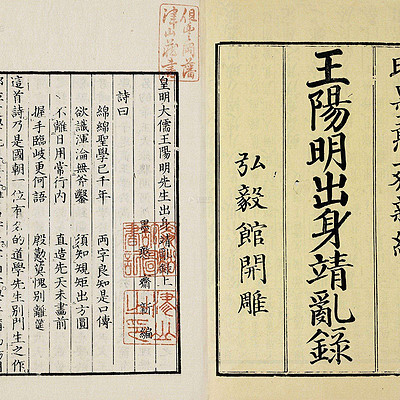 明墨憨齋新編
王陽明出身靖亂錄
弘毅館開雕
皇明大儒王陽明先生出身靖亂錄上
墨憨齋新編
詩曰
綿綿聖學已千年　兩字良知是口傳
欲識渾淪無斧鑿　須知規矩出方圓
不離日用常行內　直造先天未畫前
握手臨岐更何語　殷勤莫愧別離筵
這首詩乃是國朝一位有名的道學先生別門生之作